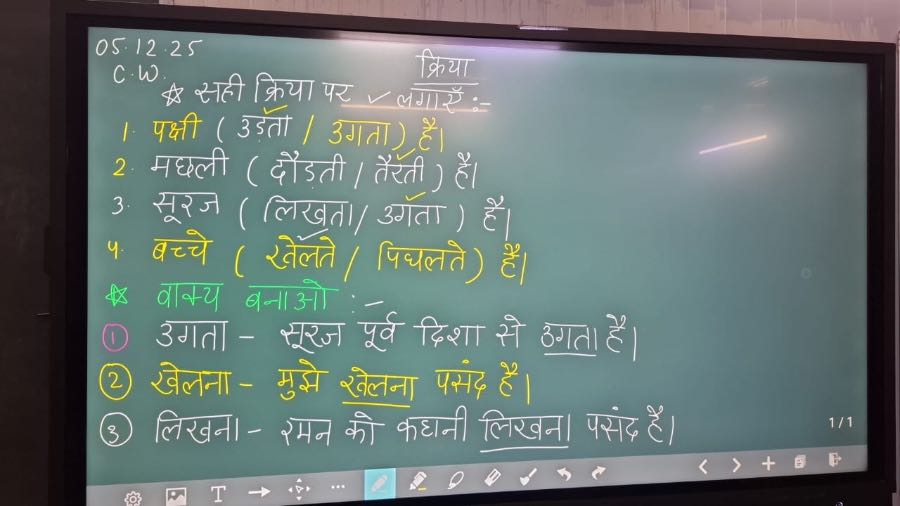 05.12.25
क्रिया
C.W.
☆ सही क्रिया पर ✓ लगाएँ :-
1. पक्षी ( उड़ता / उगता ) है।
2. मछली ( दौड़ती / तैरती ) है।
3. सूरज ( लिखता / उगता ) है।
4. बच्चे ( खेलते / पिघलते ) हैं।
☆ वाक्य बनाओ :-
① उगता - सूरज पूर्व दिशा से उगता है।
② खेलना - मुझे खेलना पसंद है।
③ लिखना - रमन को कहानी लिखना पसंद है।
1/1
T